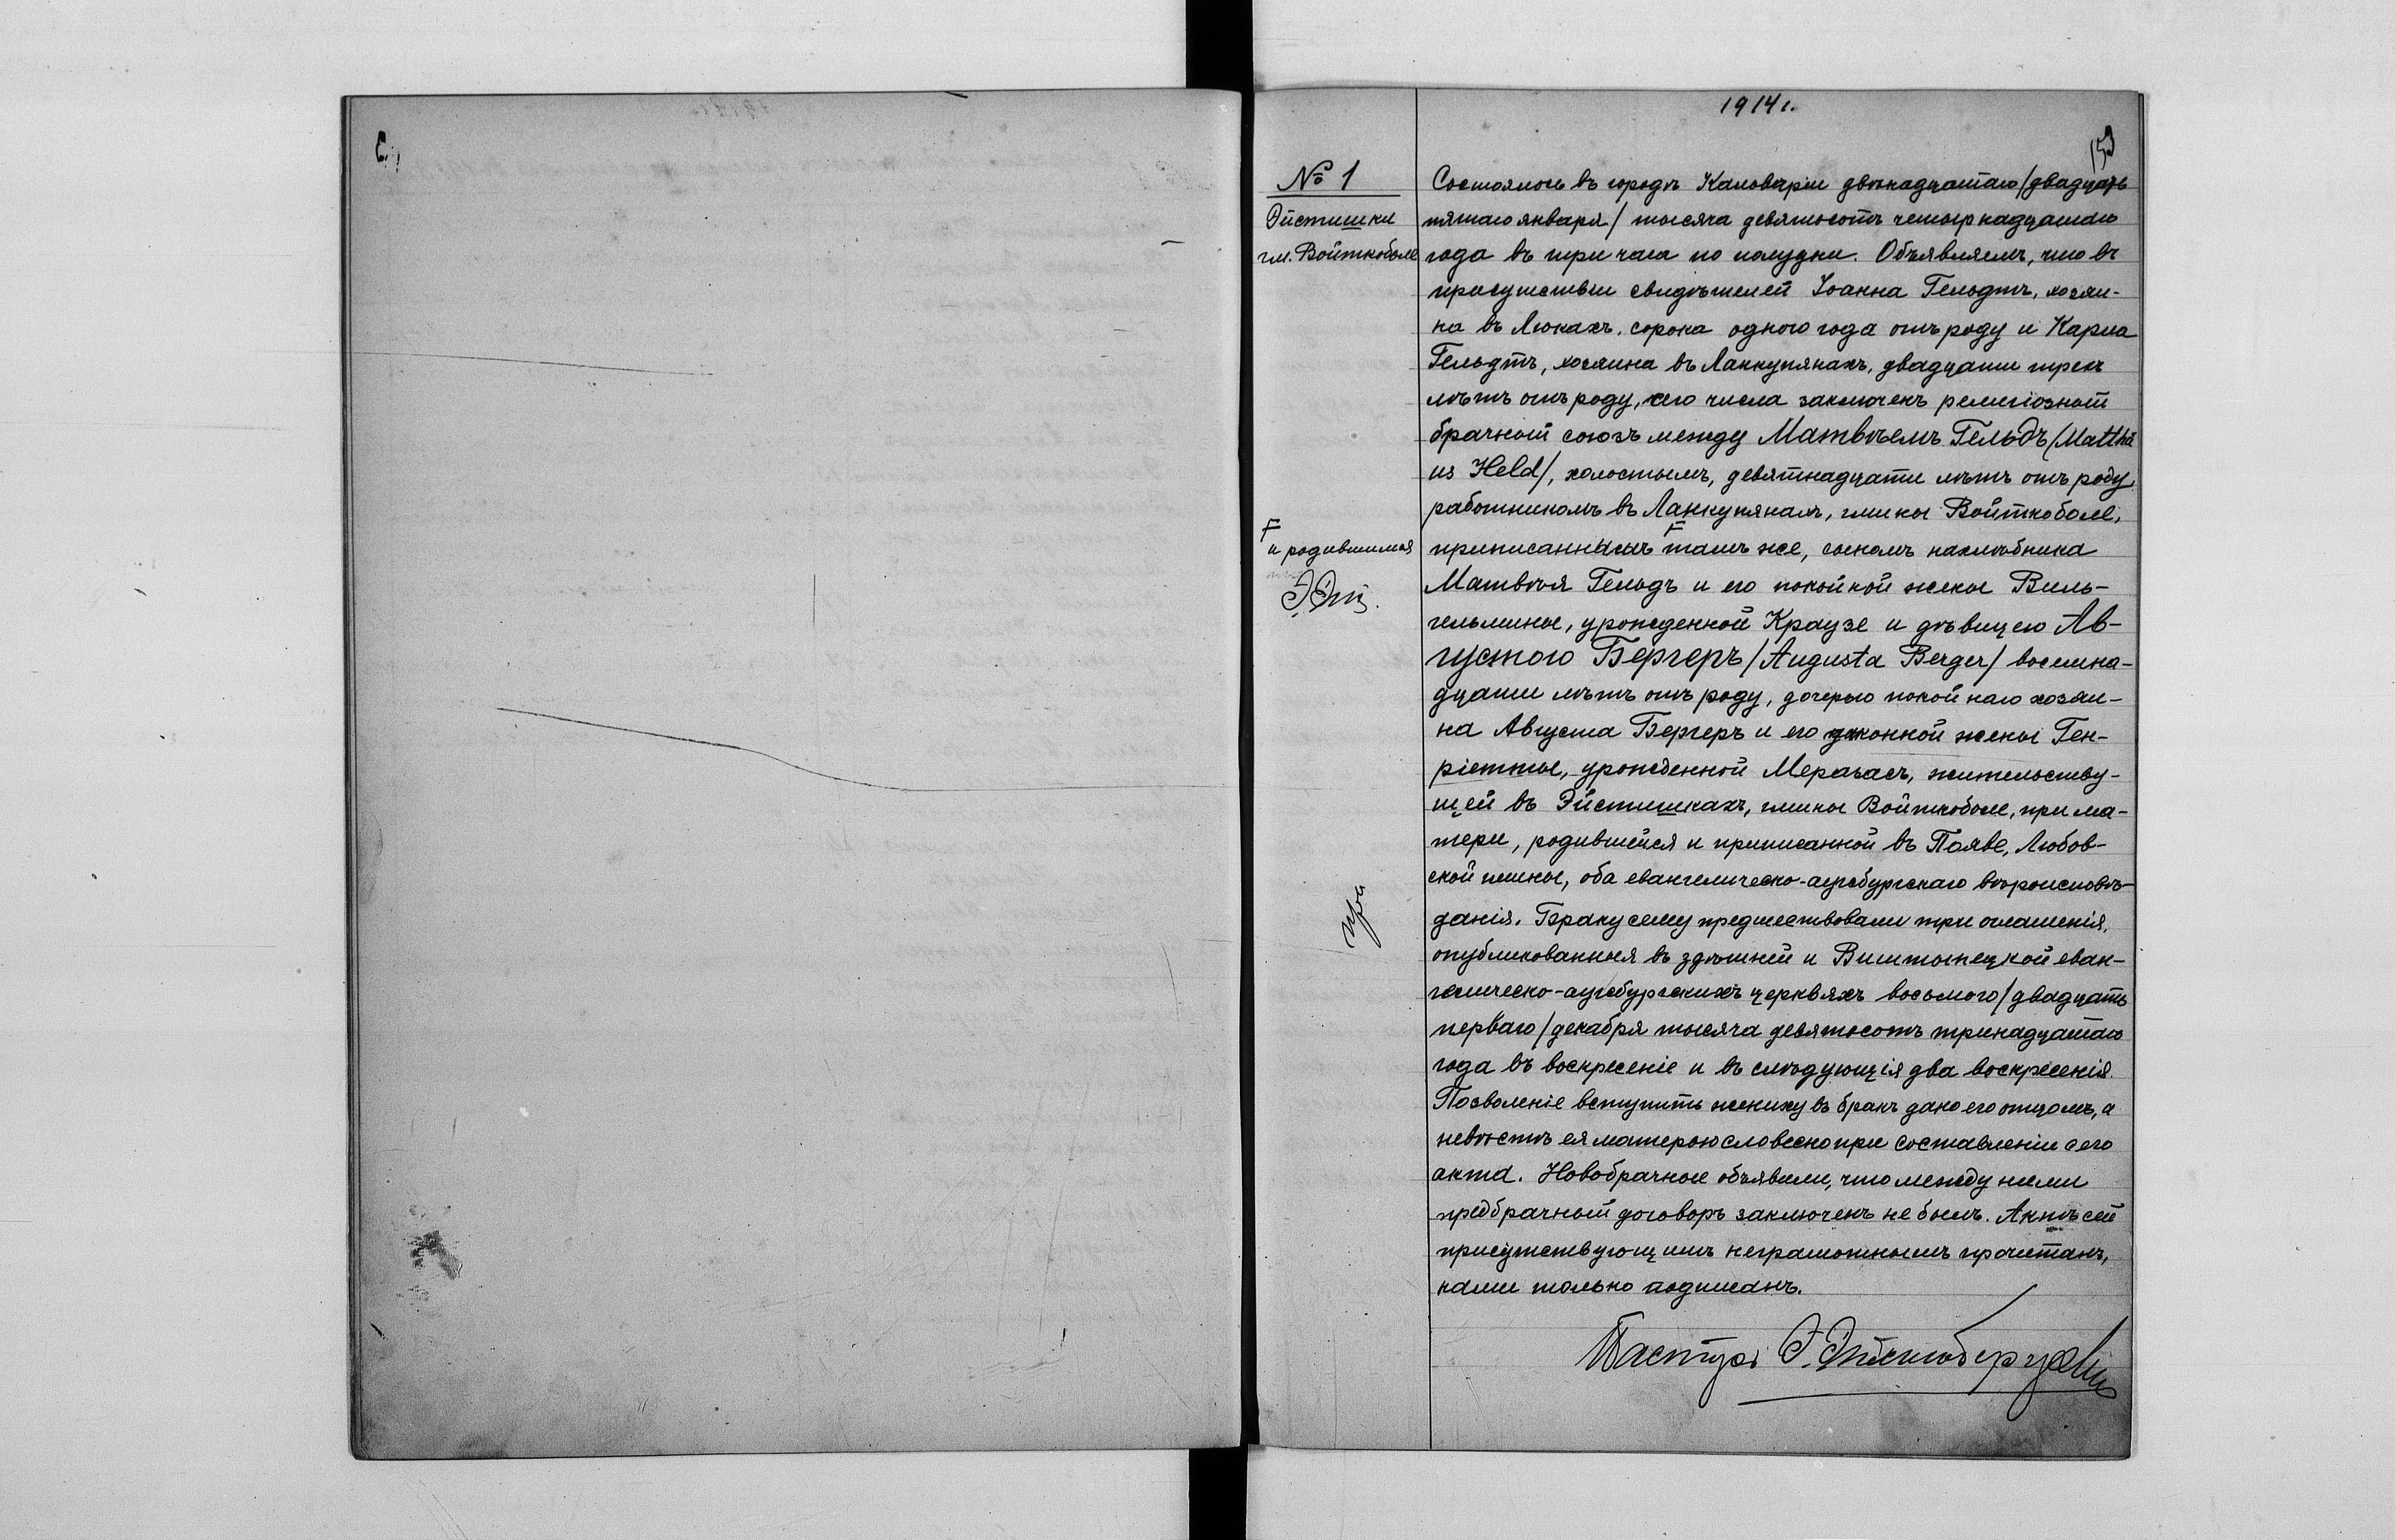 1914 г.
№ 1
Эйстишки
гм. Войткоболе
Состоялось въ городѣ Кальваріи двѣнадцатаго/двадцать
пятаго января/ тысяча девятьсотъ четырнадцатаго
года въ три часа по полудни. Объявляемъ, что въ
присутствіи свидѣтелей Іоанна Гельдтъ, хозяи-
на въ Люкахъ, сорока одного года отъ роду и Карла
Гельдтъ, хозяина въ Ланкупянахъ, двадцати трехъ
лѣтъ отъ роду, сего числа заключенъ религіозный
брачный союзъ между Матвѣемъ Гельдъ (Matthä
us Held/, холостымъ, девятнадцати лѣтъ отъ роду,
работникомъ въ Ланкупянахъ, гмины Войткоболе,
приписаннымъ тамъ же, сыномъ нахлѣбника
и родившимся
Э.Эйх.
Матвѣя Гельдъ и его покойной жены Виль-
гельмины, урожденной Краузе и дѣвицею Ав-
густою Бергеръ/Augusta Berger/ восемна-
дцати лѣтъ отъ роду, дочерью покойнаго хозяи-
на Августа Бергеръ и его законной жены Ген-
ріетты, урожденной жительству-
щей въ Эйстишкахъ, гмины Войткоболе, при ма-
тери, родившейся и приписанной въ Появе, Любов-
ской гмины, оба евангелическо-аугсбургскаго вѣроисповѣ-
данія. Браку сему предшествовали три оглашенія,
опубликованныя въ здѣшней и Виштынецкой еван-
гелическо-аугсбургскихъ церквяхъ восьмого/двадцать
перваго/декабря тысяча девятьсотъ тринадцатаго
года въ воскресеніе и въ слѣдующія два воскресенія.
Позволеніе вступить жениху въ бракъ дано его отцомъ, а
невѣстѣ ея матерью словесно при составленіи сего
акта. Новобрачные объявили, что между ними
предбрачный договоръ заключенъ не былъ. Актъ сей
присутствующимъ неграмотнымъ прочитанъ,
нами только подписанъ.
Пасторъ Э.